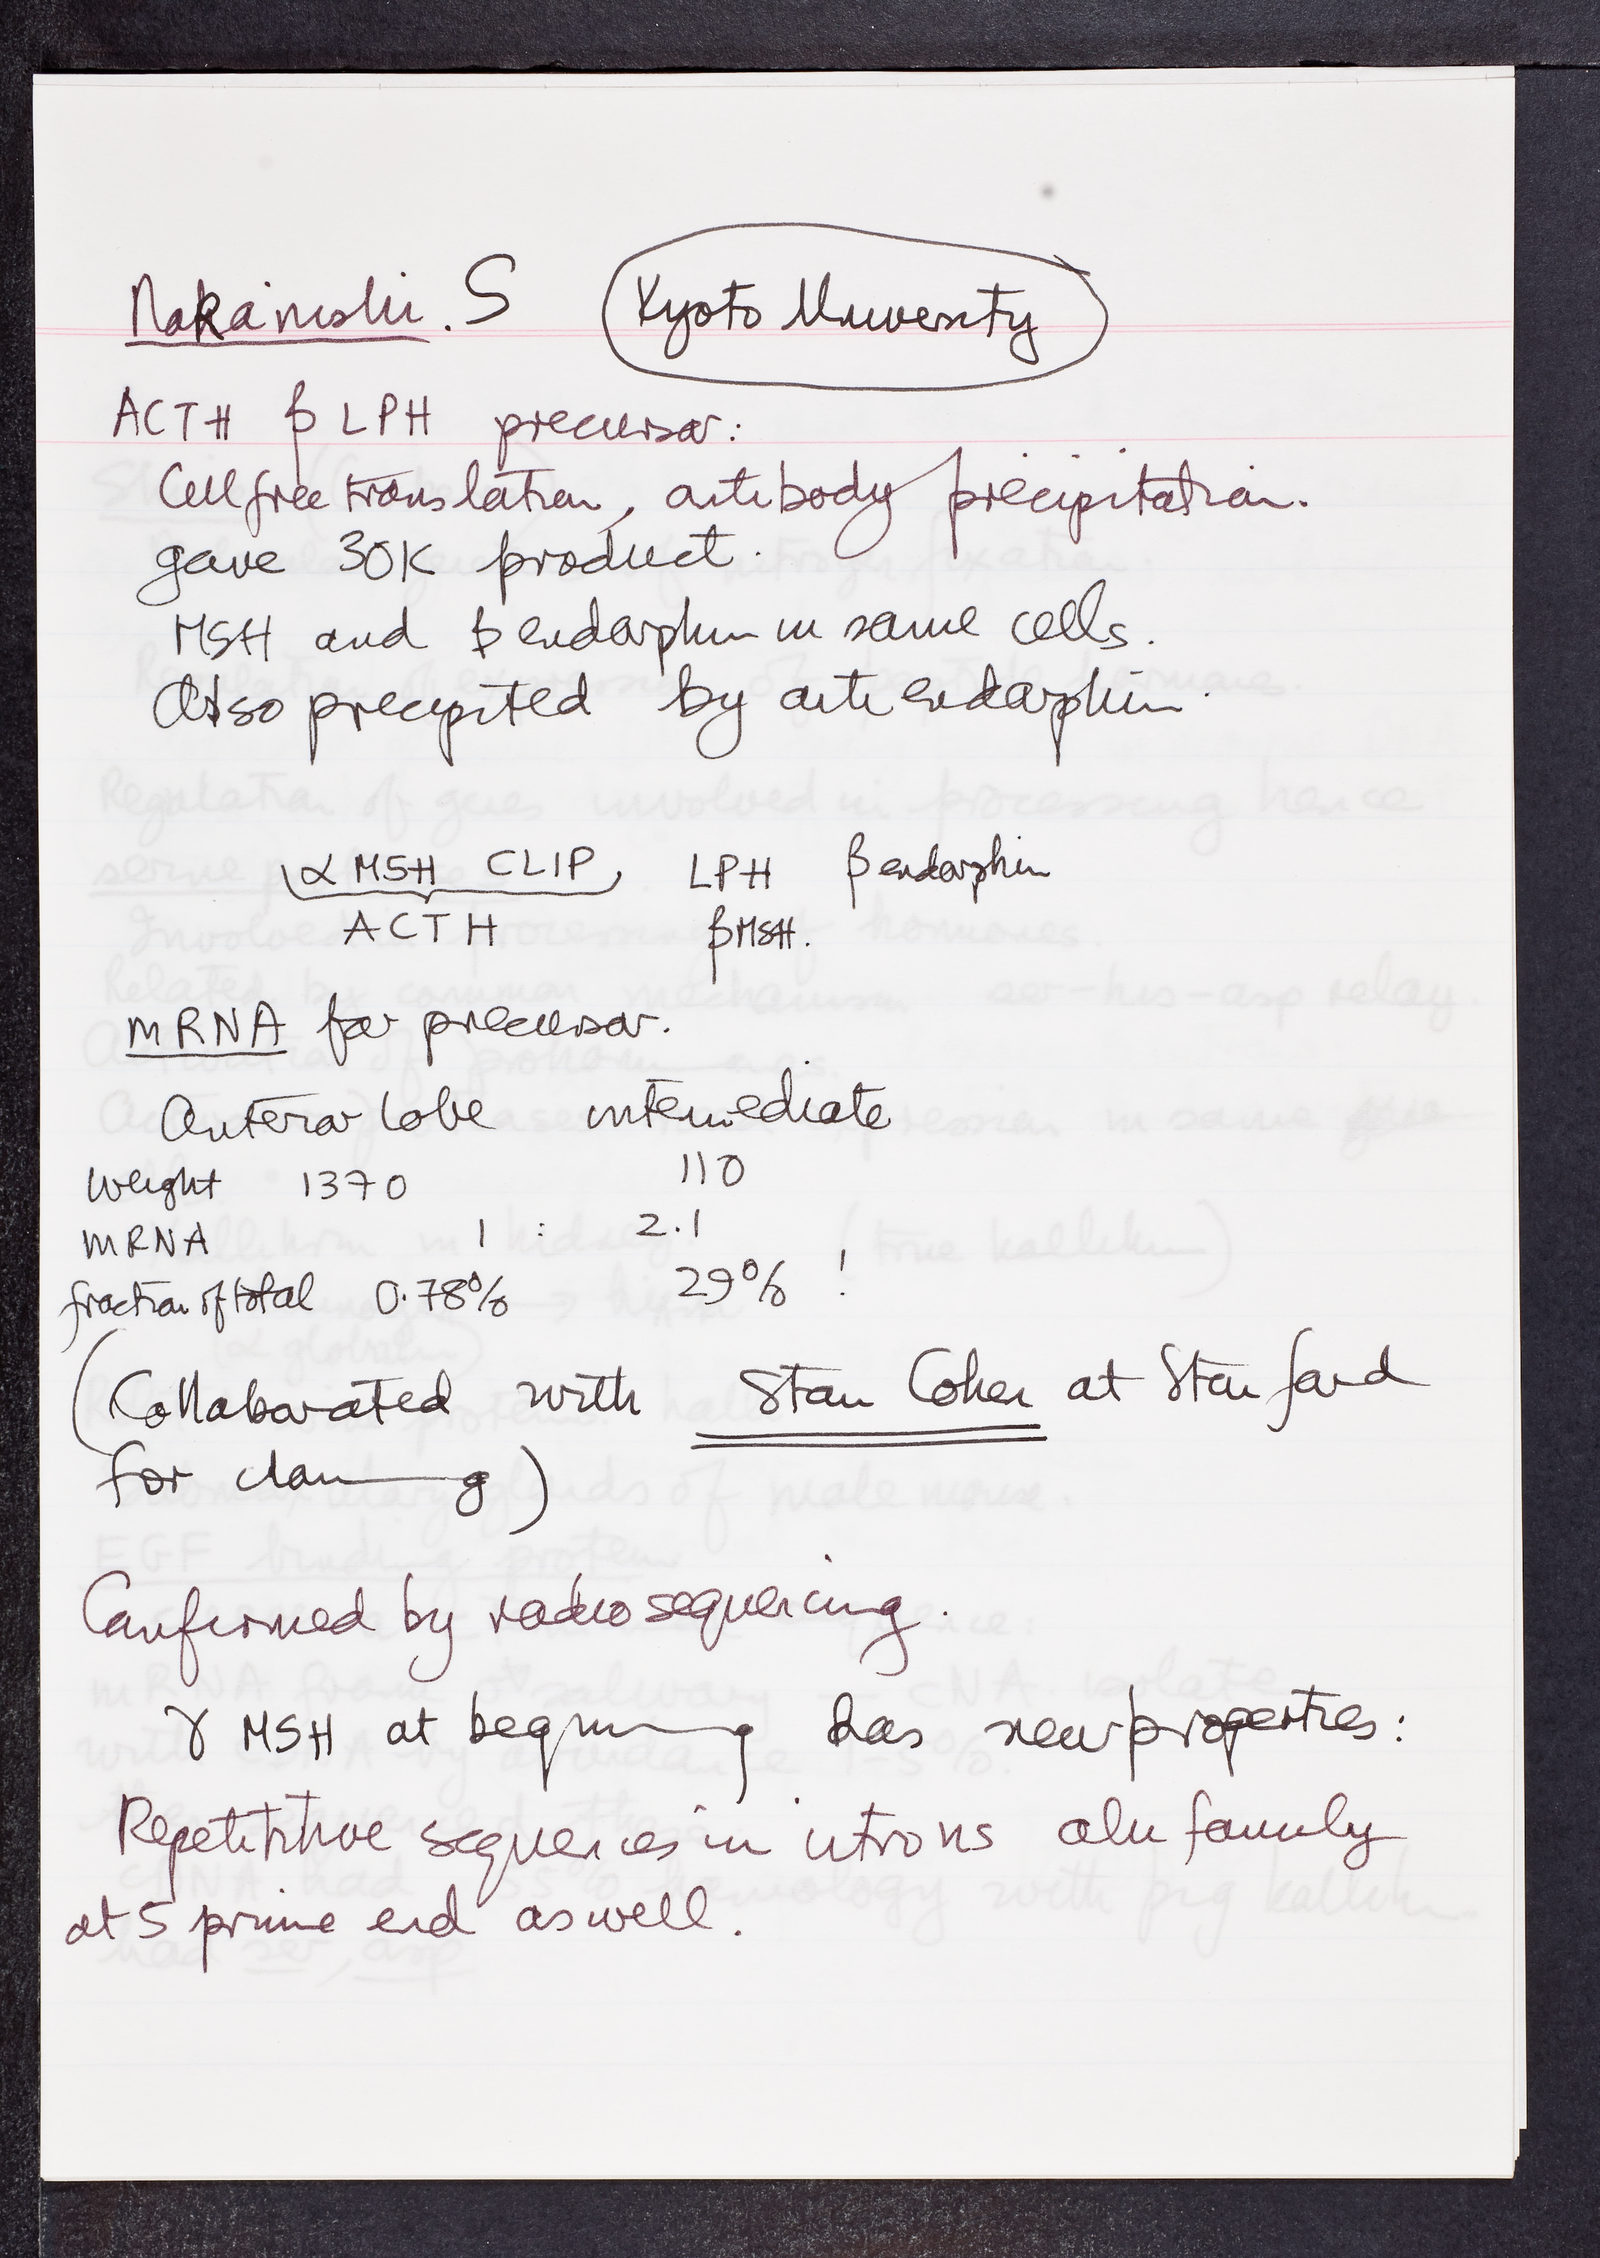 Nakanishi. S Kyoto University
ACTH β LPH precursor:
Cell free translation, antibody precipitation.
gave 30K product.
MSH and β endorphin in same cells.
Also precepited by anti endorphin.
α MSH CLIP, LPH β endorphin
ACTH β MSH.
mRNA for precursor.
Anterior lobe intermediate
Weight 1370 110
mRNA 1 : 2.1
fraction of total 0.78% 29% !
(Collaborated with Stan Cohen at Stanford
for cloning)
Confirmed by radiosequencing.
γ MSH at beginning has new properties:
Repetitive sequences in introns alu family
at 5 prime end as well.